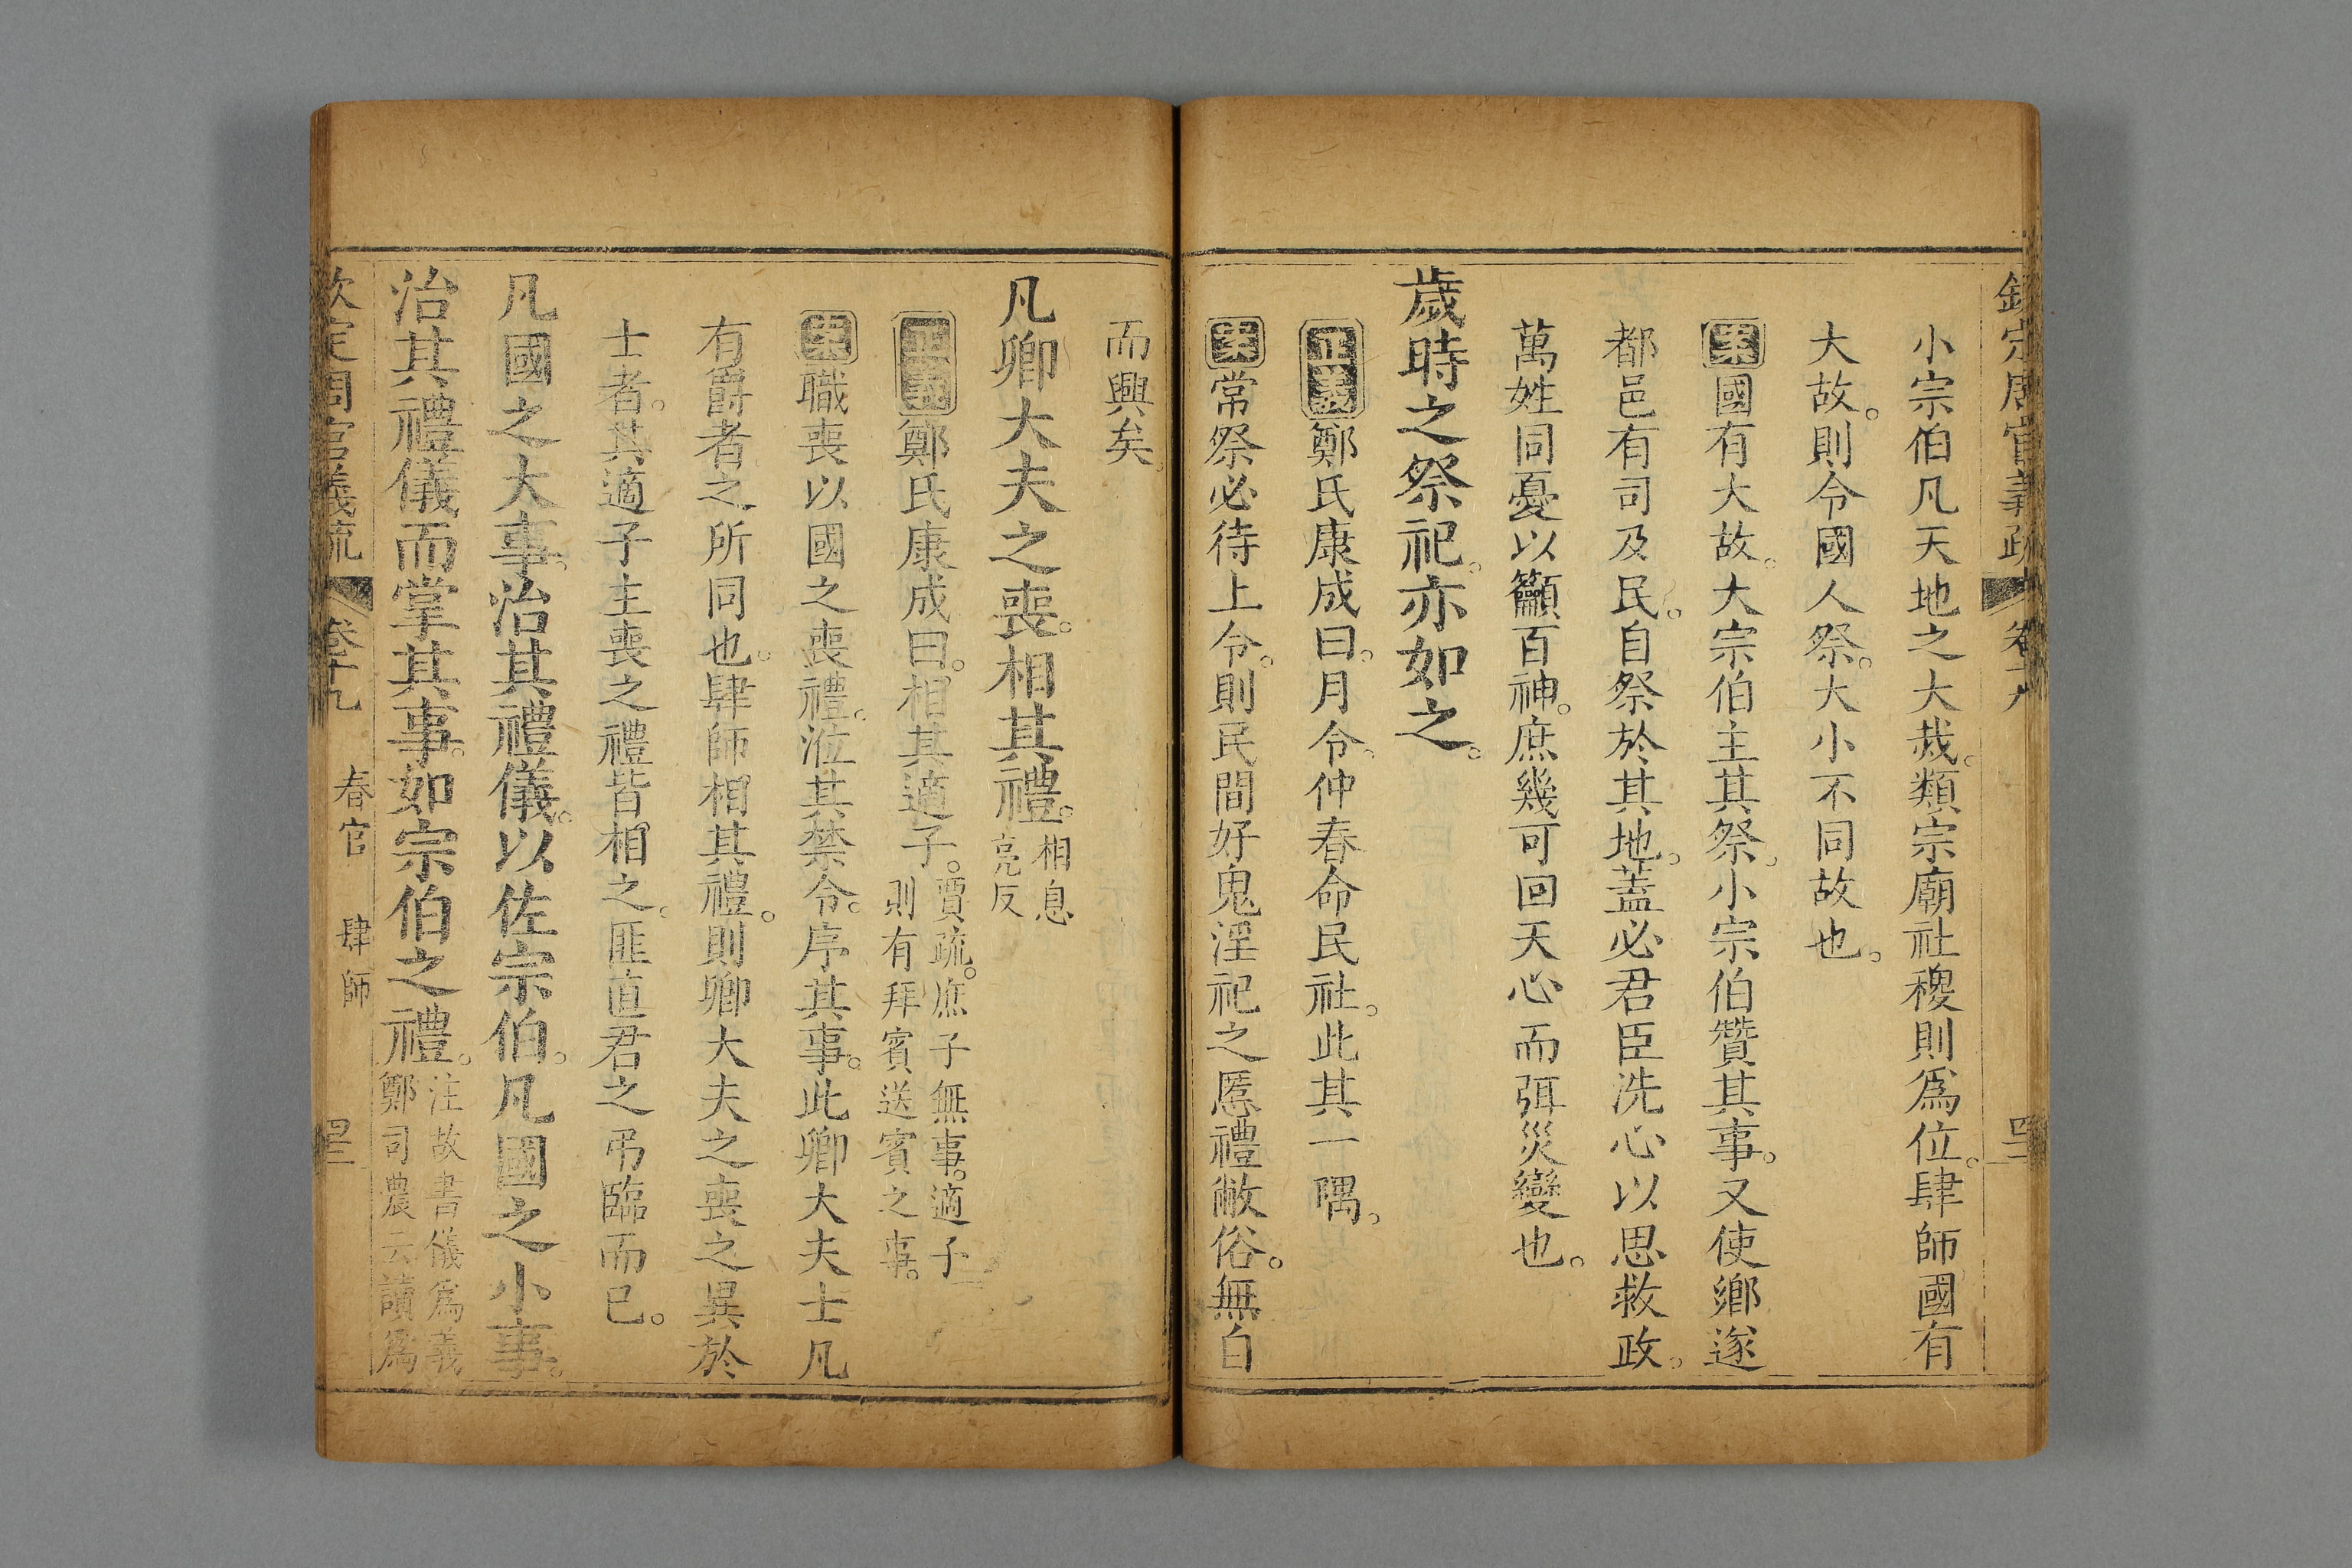 欽定周官義疏 卷十九
小宗伯凡天地之大烖。類宗廟社稷則爲位。肆師國有
大故。則令國人祭。大小不同故也。
案國有大故。大宗伯主其祭。小宗伯贊其事。又使鄉遂
都邑有司及民。自祭於其地。蓋必君臣洗心以思救政。
萬姓同憂以籲百神。庶幾可回天心而弭災變也。
歲時之祭祀。亦如之。
正義鄭氏康成曰。月令。仲春命民社。此其一隅。
案常祭必待上令。則民間好鬼淫祀之慝禮敝俗。無自
而興矣。
凡卿大夫之喪。相其禮。相息亮反
正義鄭氏康成曰。相其適子。賈疏。庶子無事。適子則有拜賓送賓之事。
案職喪以國之喪禮。涖其禁令。序其事。此卿大夫士凡
有爵者之所同也。肆師相其禮。則卿大夫之喪之異於
士者。其適子主喪之禮皆相之。匪直君之弔臨而已。
凡國之大事。治其禮儀。以佐宗伯。凡國之小事。
治其禮儀而掌其事。如宗伯之禮。注故書儀爲義鄭司農云讀爲
欽定周官義疏 卷十九 春官 肆師